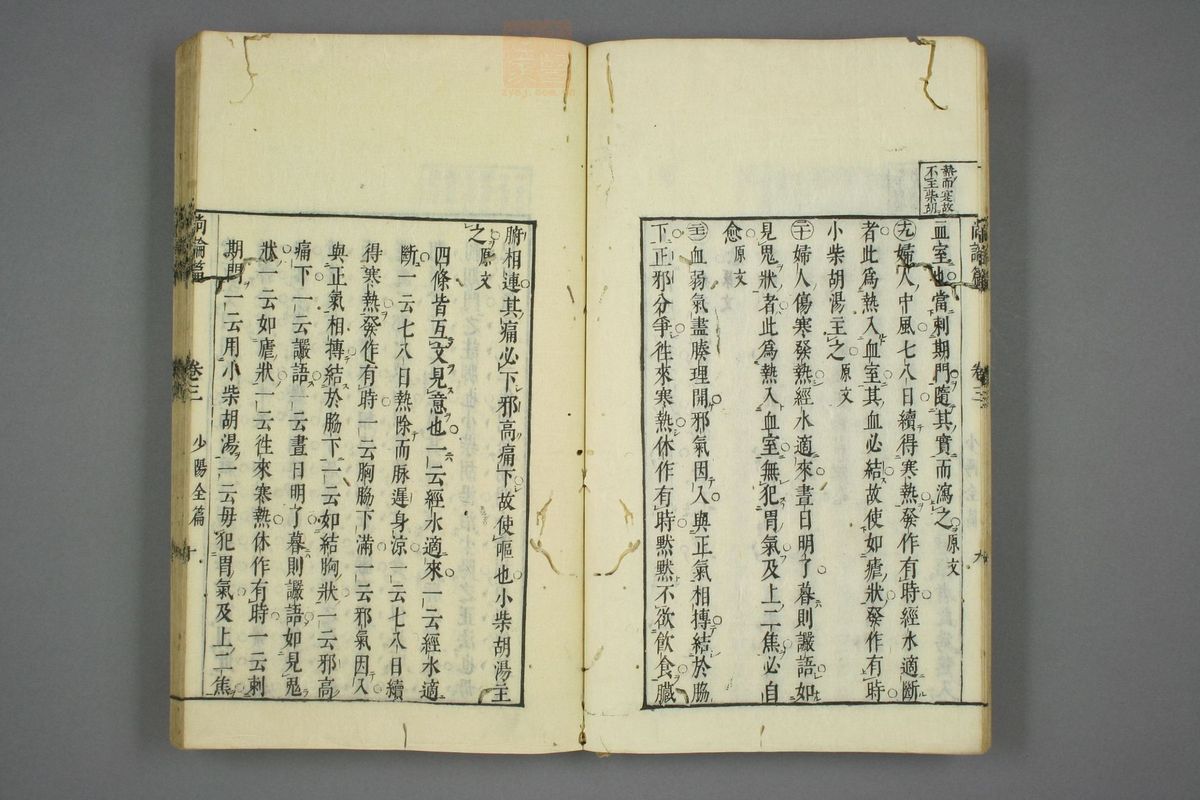 熱而寔故
不主柴胡
血室也當刺期門隨其實而瀉之原文
十九婦人中風七八日續得寒熱發作有時經水適斷
者此爲熱入血室其血必結故使如瘧狀發作有時
小柴胡湯主之原文
二十婦人傷寒發熱經水適來晝日明了暮則讝語如
見鬼狀者此爲熱入血室無犯胃氣及上二焦必自
愈原文
血弱氣盡腠理開邪氣因入與正氣相摶結於脇
下正邪分爭徃來寒熱休作有時黙黙不欲飲食臟
尚論篇 卷三 九
腑相連其痛必下邪高痛下故使嘔也小柴胡湯主
之原文
四條皆互文見意也一云經水適來一云經水適
斷一云七八日熱除而脉遲身涼一云七八日續
得寒熱發作有時一云胸脇下滿一云邪氣因入
與正氣相摶結於脇下一云如結胸狀一云邪高
痛下一云讝語一云晝日明了暮則讝語如見鬼
狀一云如瘧狀一云徃來寒熱休作有時一云刺
期門一云用小柴胡湯一云毋犯胃氣及上二焦
尚論篇 卷三 少陽全篇 十